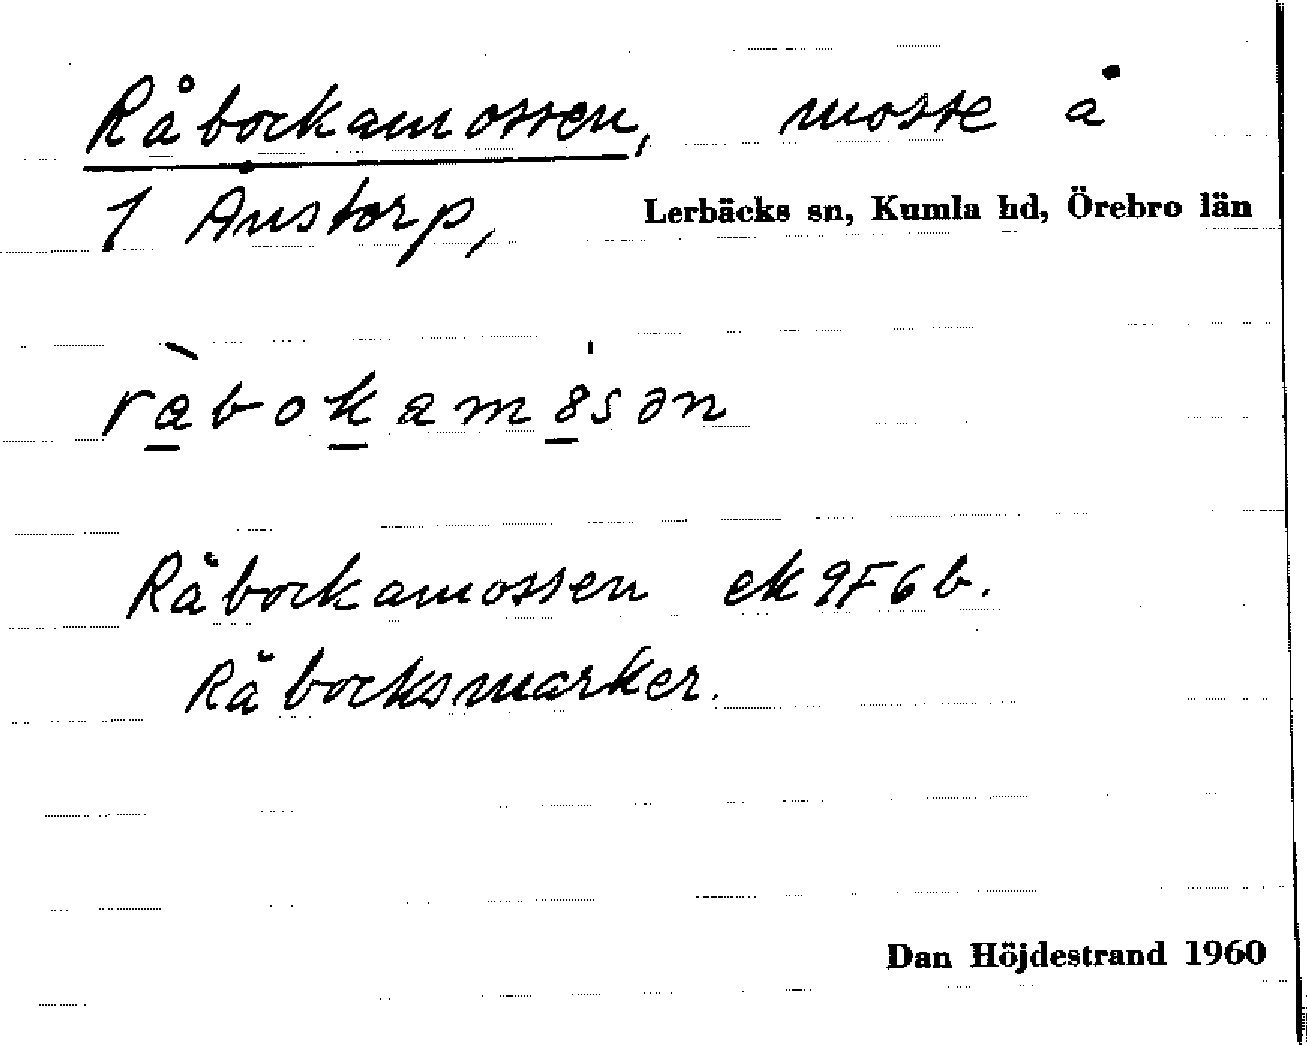 Råbockamossen, mosse å
1 Ånstorp, Lerbäcks sn, Kumla hd, Örebro län
Råbockamossen ek 9F6b.
Råbocksmarker.
Dan Höjdestrand 1960